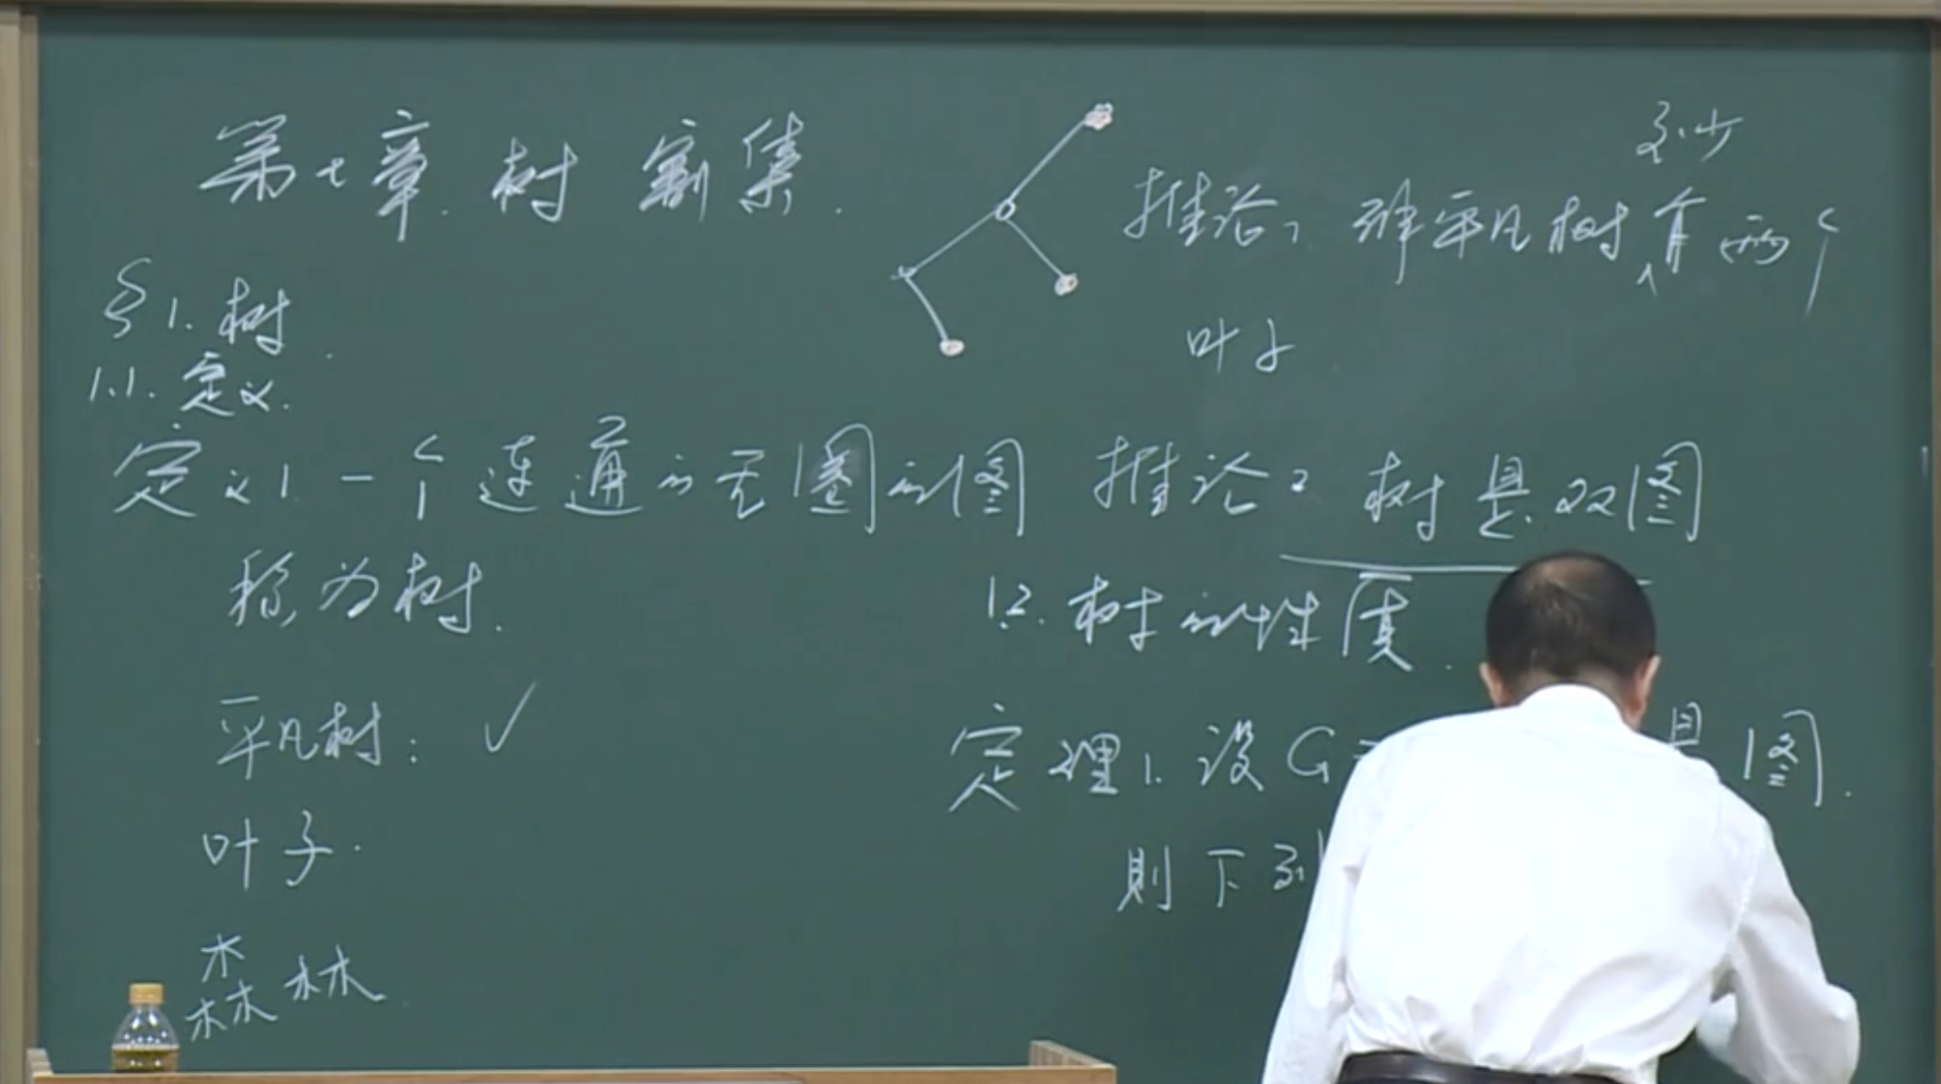 第七章 树 割集.
§1. 树.
1.1. 定义.
定义1 一个连通的无圈的图
称为树.
平凡树: ✓
叶子.
森林.
至少
推论1 非平凡树有两个
叶子.
推论2 树是双图
1.2. 树的性质.
定理1. 设G= 是图.
则下列